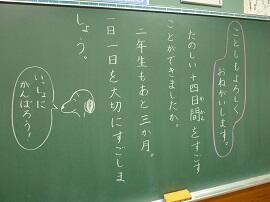 ことしもよろしく
おねがいします。
たのしい十四日間をすごす
ことができましたか。
二年生もあと三か月。
一日一日を大切にすごしま
しょう。
いっしょに
がんばろう!